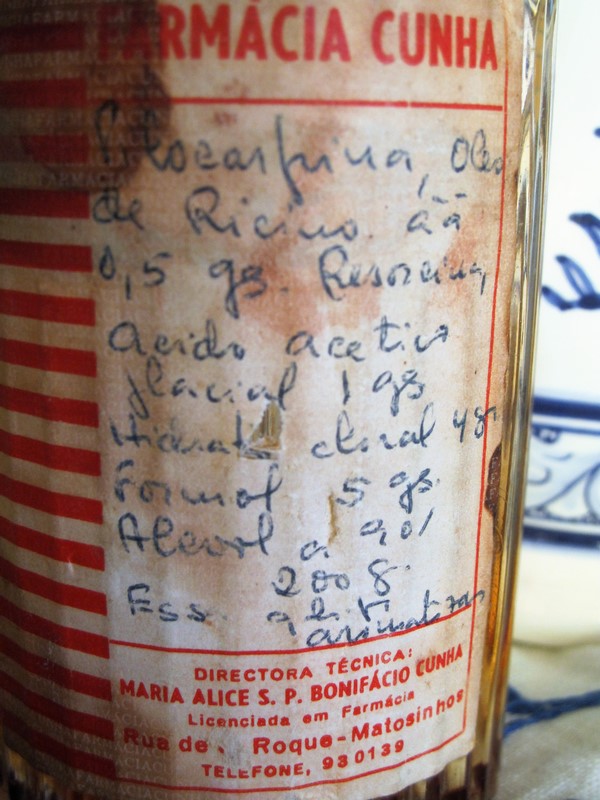 FARMÁCIA CUNHA
Pilocarpina, Oleo
de Ricino āā
0,5 gs. Resorcina,
Acido acetico
glacial 1 gs
Hidrato cloral 4 gr.
Formol 5 gs.
Alcool a 90/
200 g.
Ess. q.b.
aromatizar
DIRECTORA TÉCNICA:
MARIA ALICE S. P. BONIFÁCIO CUNHA
Licenciada em Farmácia
Rua de Roque-Matosinhos
TELEFONE, 930139